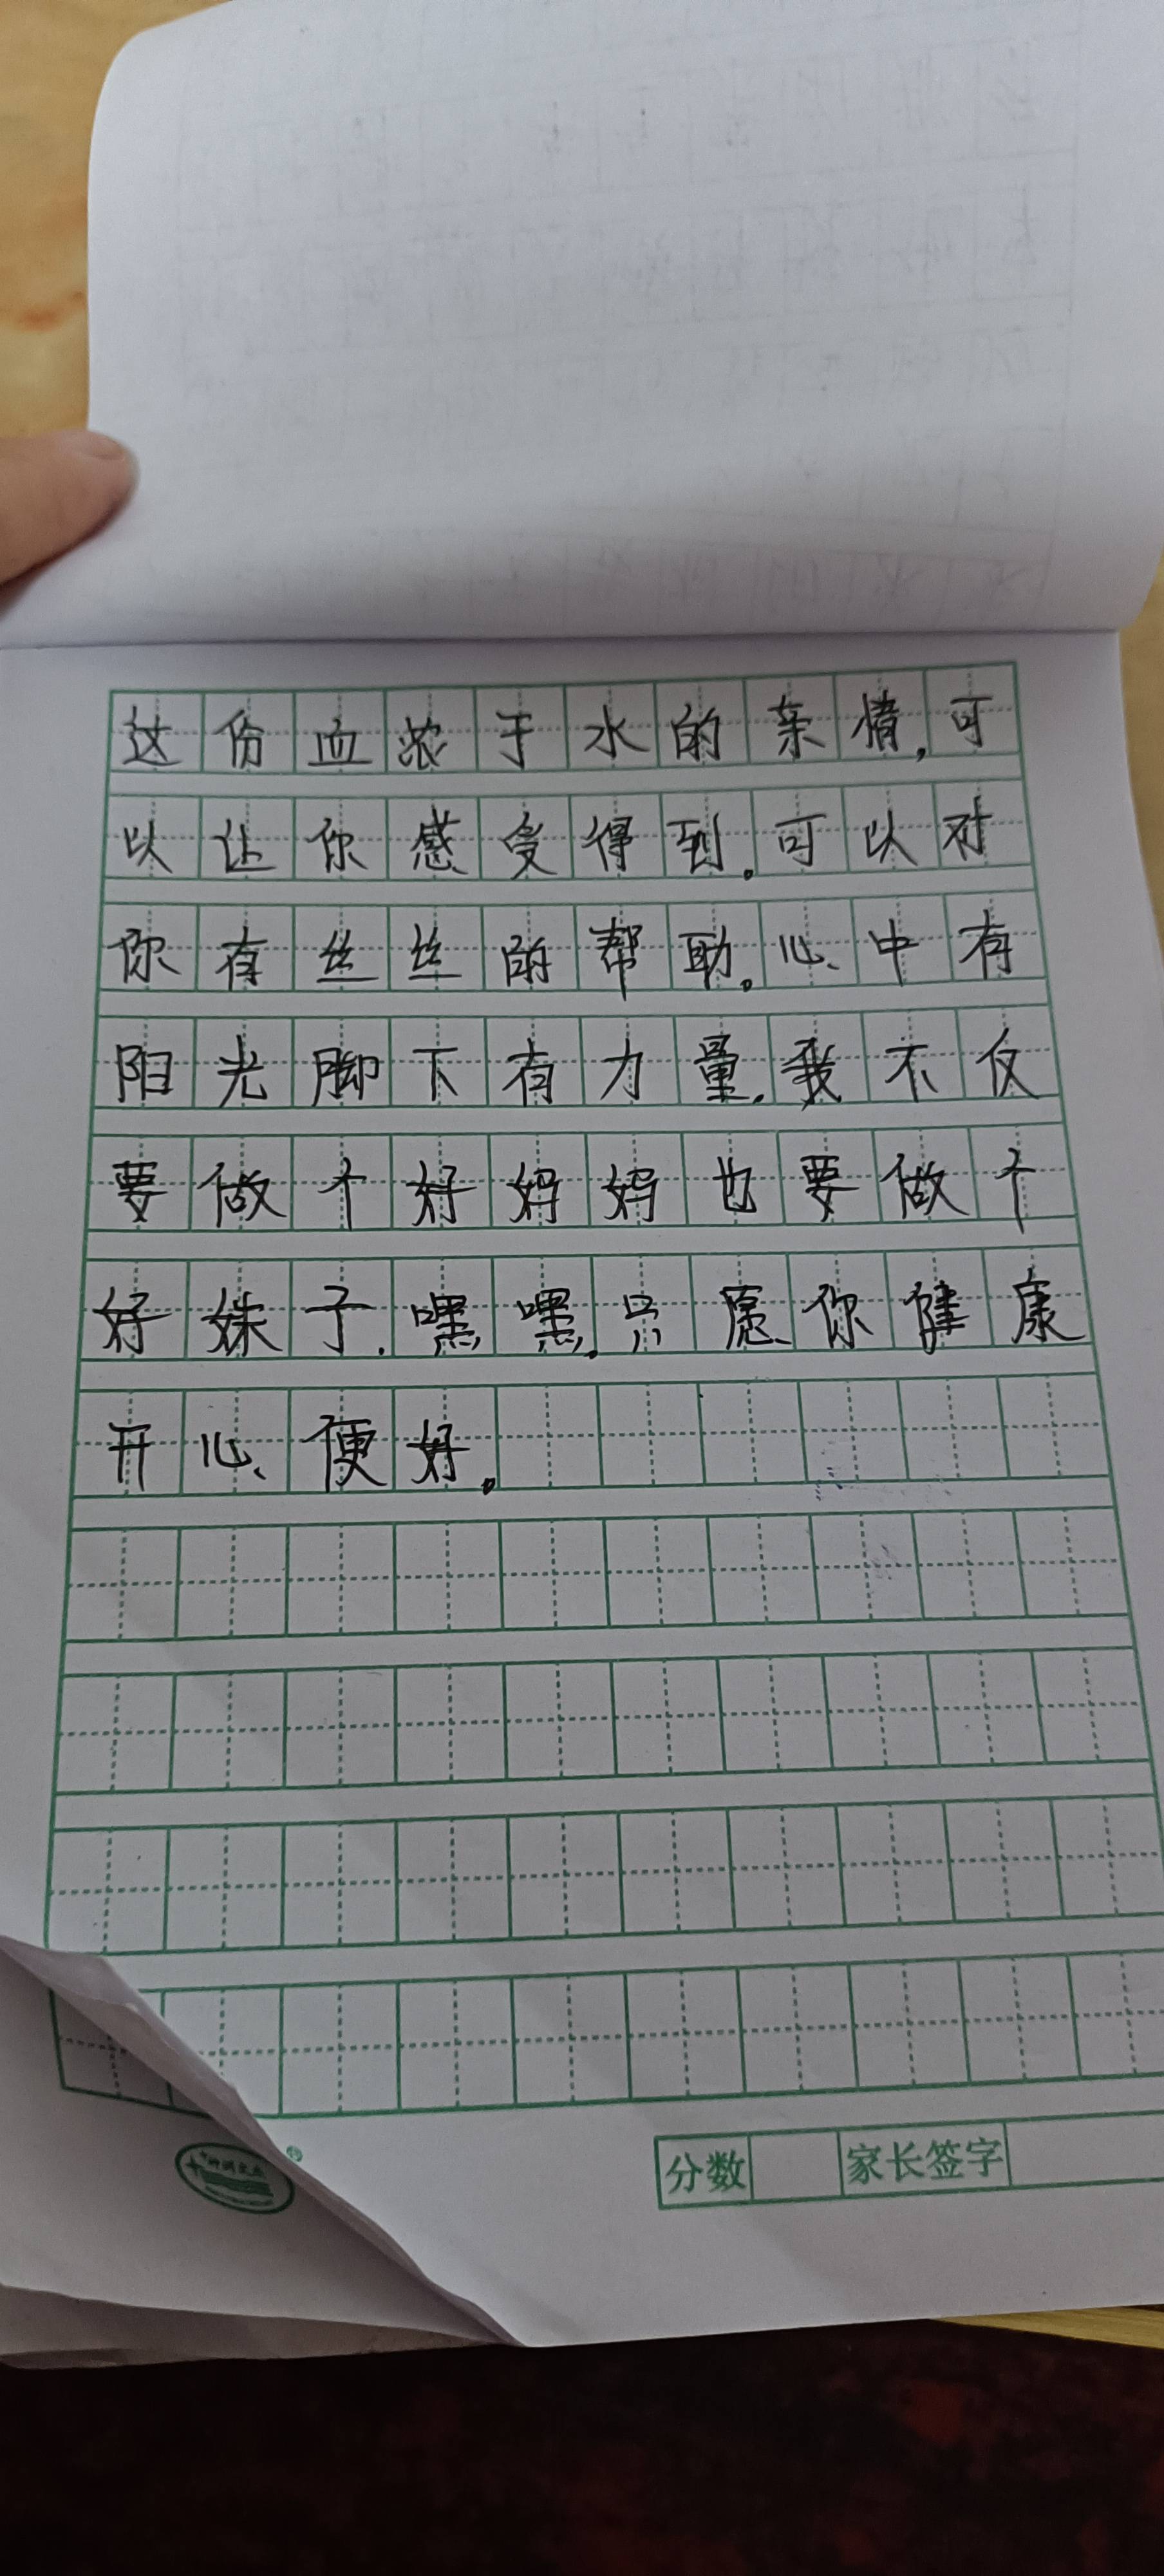 这份血浓于水的亲情,可
以让你感受得到。可以对
你有丝丝的帮助。心中有
阳光脚下有力量.我不仅
要做个好妈妈也要做个
好妹子.嘿嘿.只愿你健康
开心便好。
分数 家长签字